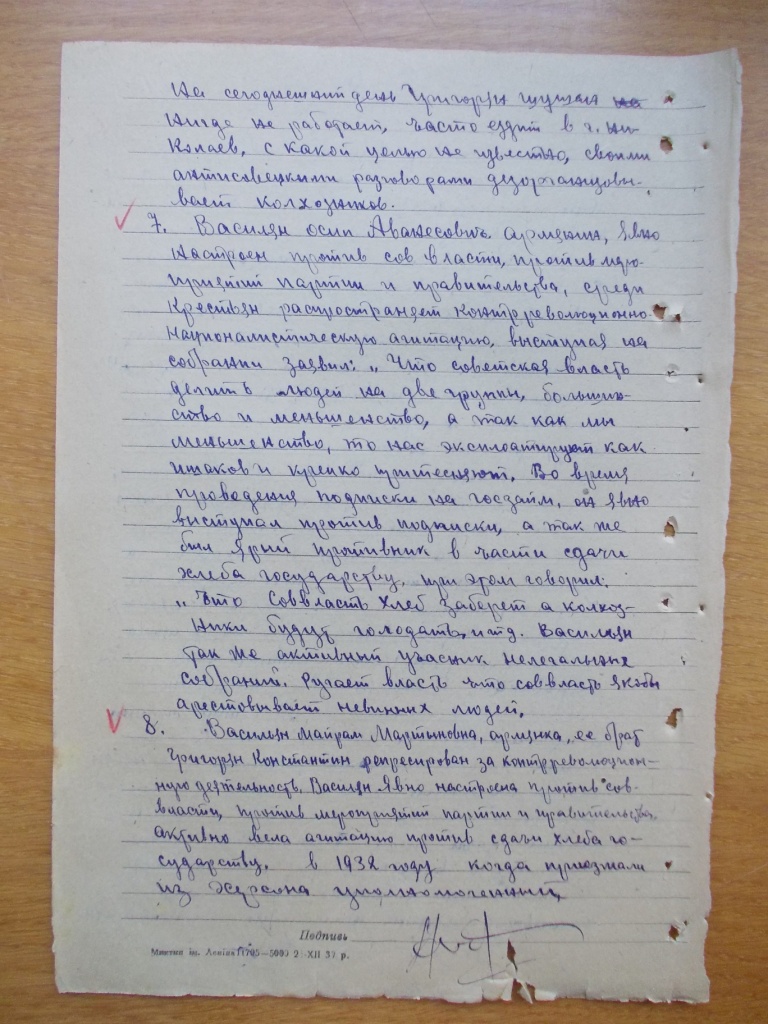 На сегоднешний день Григорян шушан на
нигде не работает, часто ездит в г. Ни-
колаев, с какой целью не известно, своими
антисовецкими разговорами дезорганизовы-
вает колхозников.
7. Василян осип Аванесовичь армянин, явно
настроен против сов власти, против меро-
приятий партии и правительства, среди
крестьян распространяет контрреволюционно-
националистическую агитацию, выступая на
собрании заявил: „Что советская власть
делить людей на две группы, большин-
ство и меньшенство, а так как мы
меньшенство, то нас эксплоатируют как
ишаков и крепко притесняют. Во время
проведения подписки на госзайм, он явно
выступал против подписки, а так же
был ярый противник в части сдачи
хлеба государству, при этом говорил:
„Что Соввласть хлеб заберет а колхоз-
ники будут голодать, итд. Василян
так же активный учасник нелегальных
собраний. Ругает власть что соввласть якобы
арестовывает невинных людей.
8. Василян Майрам Мартыновна, армянка, ее брат
Григорян Константин репресирован за контрреволюцион-
ную деятельность. Василян явно настроена против сов.
власти, против мероприятий партии и правительства,
активно вела агитацию против сдачи хлеба го-
сударству. в 1932 году когда приезжали
из Херсона уполномоченный
Подпись
Миктип ім. Леніна (1705—500) 2 XII 37 р.